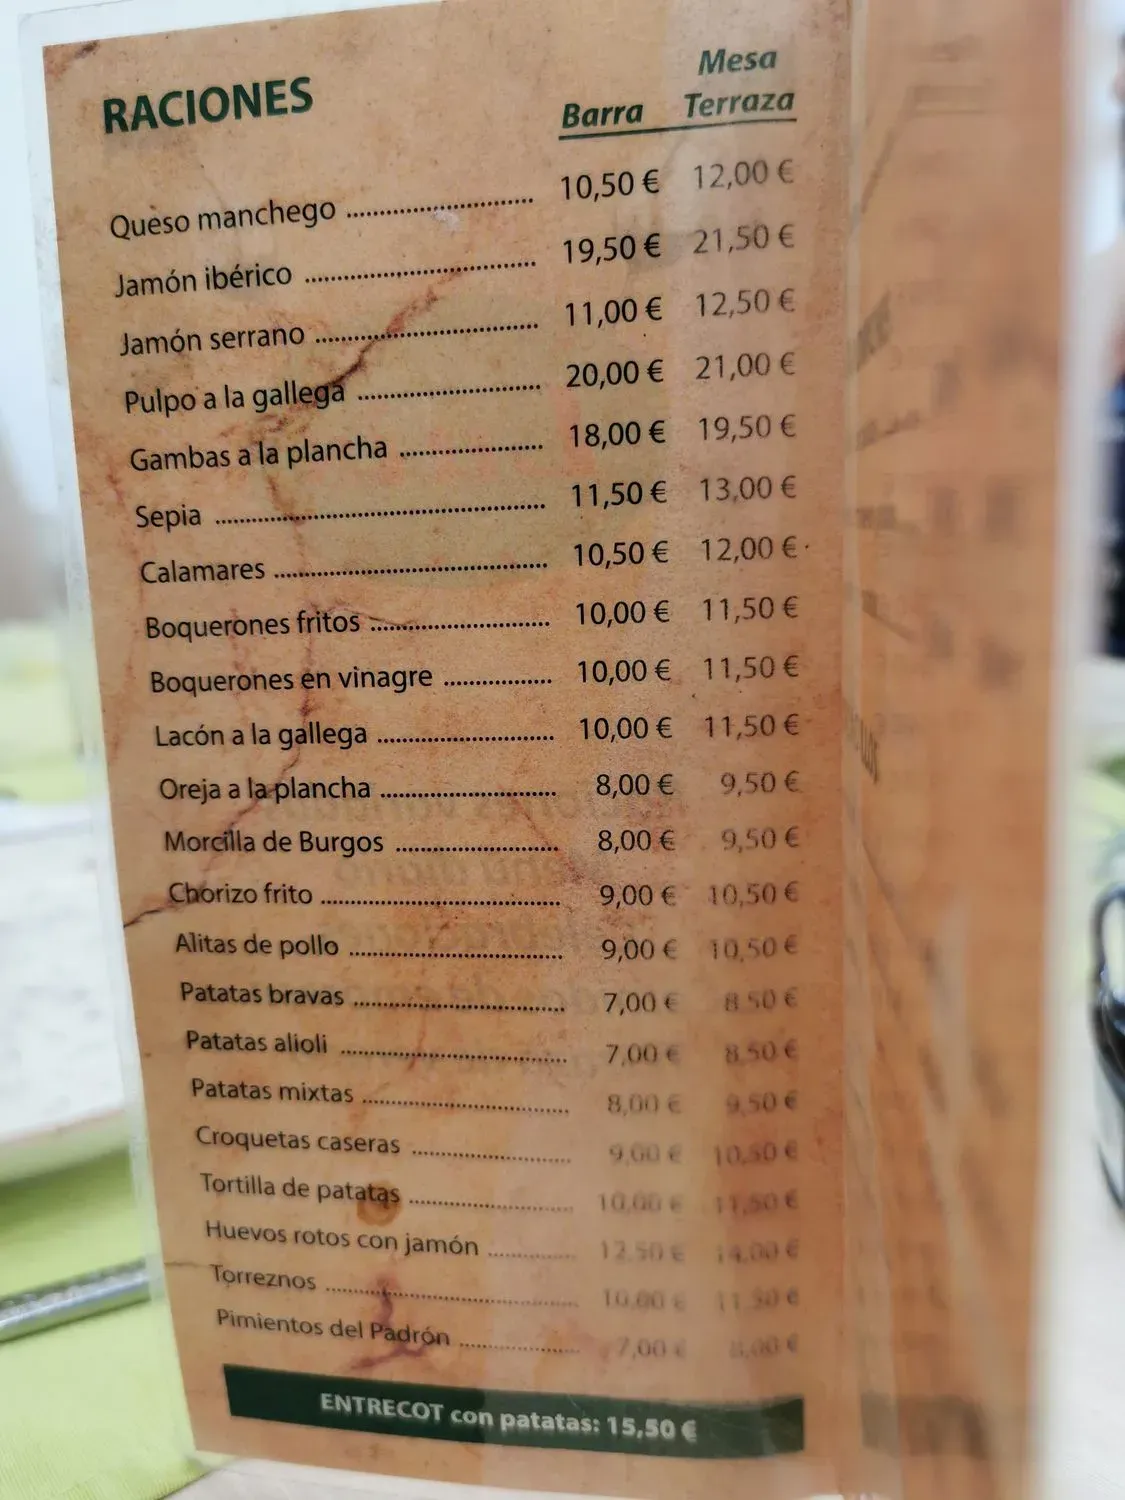 RACIONES
Barra Mesa Terraza
Queso manchego 10,50 € 12,00 €
Jamón ibérico 19,50 € 21,50 €
Jamón serrano 11,00 € 12,50 €
Pulpo a la gallega 20,00 € 21,00 €
Gambas a la plancha 18,00 € 19,50 €
Sepia 11,50 € 13,00 €
Calamares 10,50 € 12,00 €
Boquerones fritos 10,00 € 11,50 €
Boquerones en vinagre 10,00 € 11,50 €
Lacón a la gallega 10,00 € 11,50 €
Oreja a la plancha 8,00 € 9,50 €
Morcilla de Burgos 8,00 € 9,50 €
Chorizo frito 9,00 € 10,50 €
Alitas de pollo 9,00 € 10,50 €
Patatas bravas 7,00 € 8,50 €
Patatas alioli 7,00 € 8,50 €
Patatas mixtas 8,00 € 9,50 €
Croquetas caseras 9,00 € 10,50 €
Tortilla de patatas 10,00 € 11,50 €
Huevos rotos con jamón 12,50 € 14,00 €
Torreznos 10,00 € 11,50 €
Pimientos del Padrón 7,00 € 8,00 €
ENTRECOT con patatas: 15,50 €